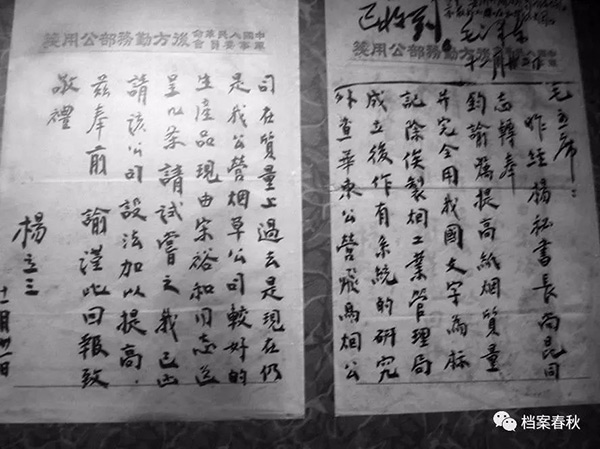 已收到
毛泽东
中國人民革命
軍事委員會
後方勤務部公用箋
毛主席：
昨經楊秘書長尚昆同
志轉奉
鈞諭為提高紙烟質量
并完全用我國文字為标
記除俟製烟工業管理局
成立後作有系統的研究
外查華東公營飛馬烟公
中國人民革命
軍事委員會
後方勤務部公用箋
司在質量上過去是現在仍
是我公營烟草公司較好的
生產品現由宋裕和同志送
呈几条請試嘗之我已函
請該公司設法加以提高.
茲奉前諭謹此回報致
敬禮
楊立三
档案春秋